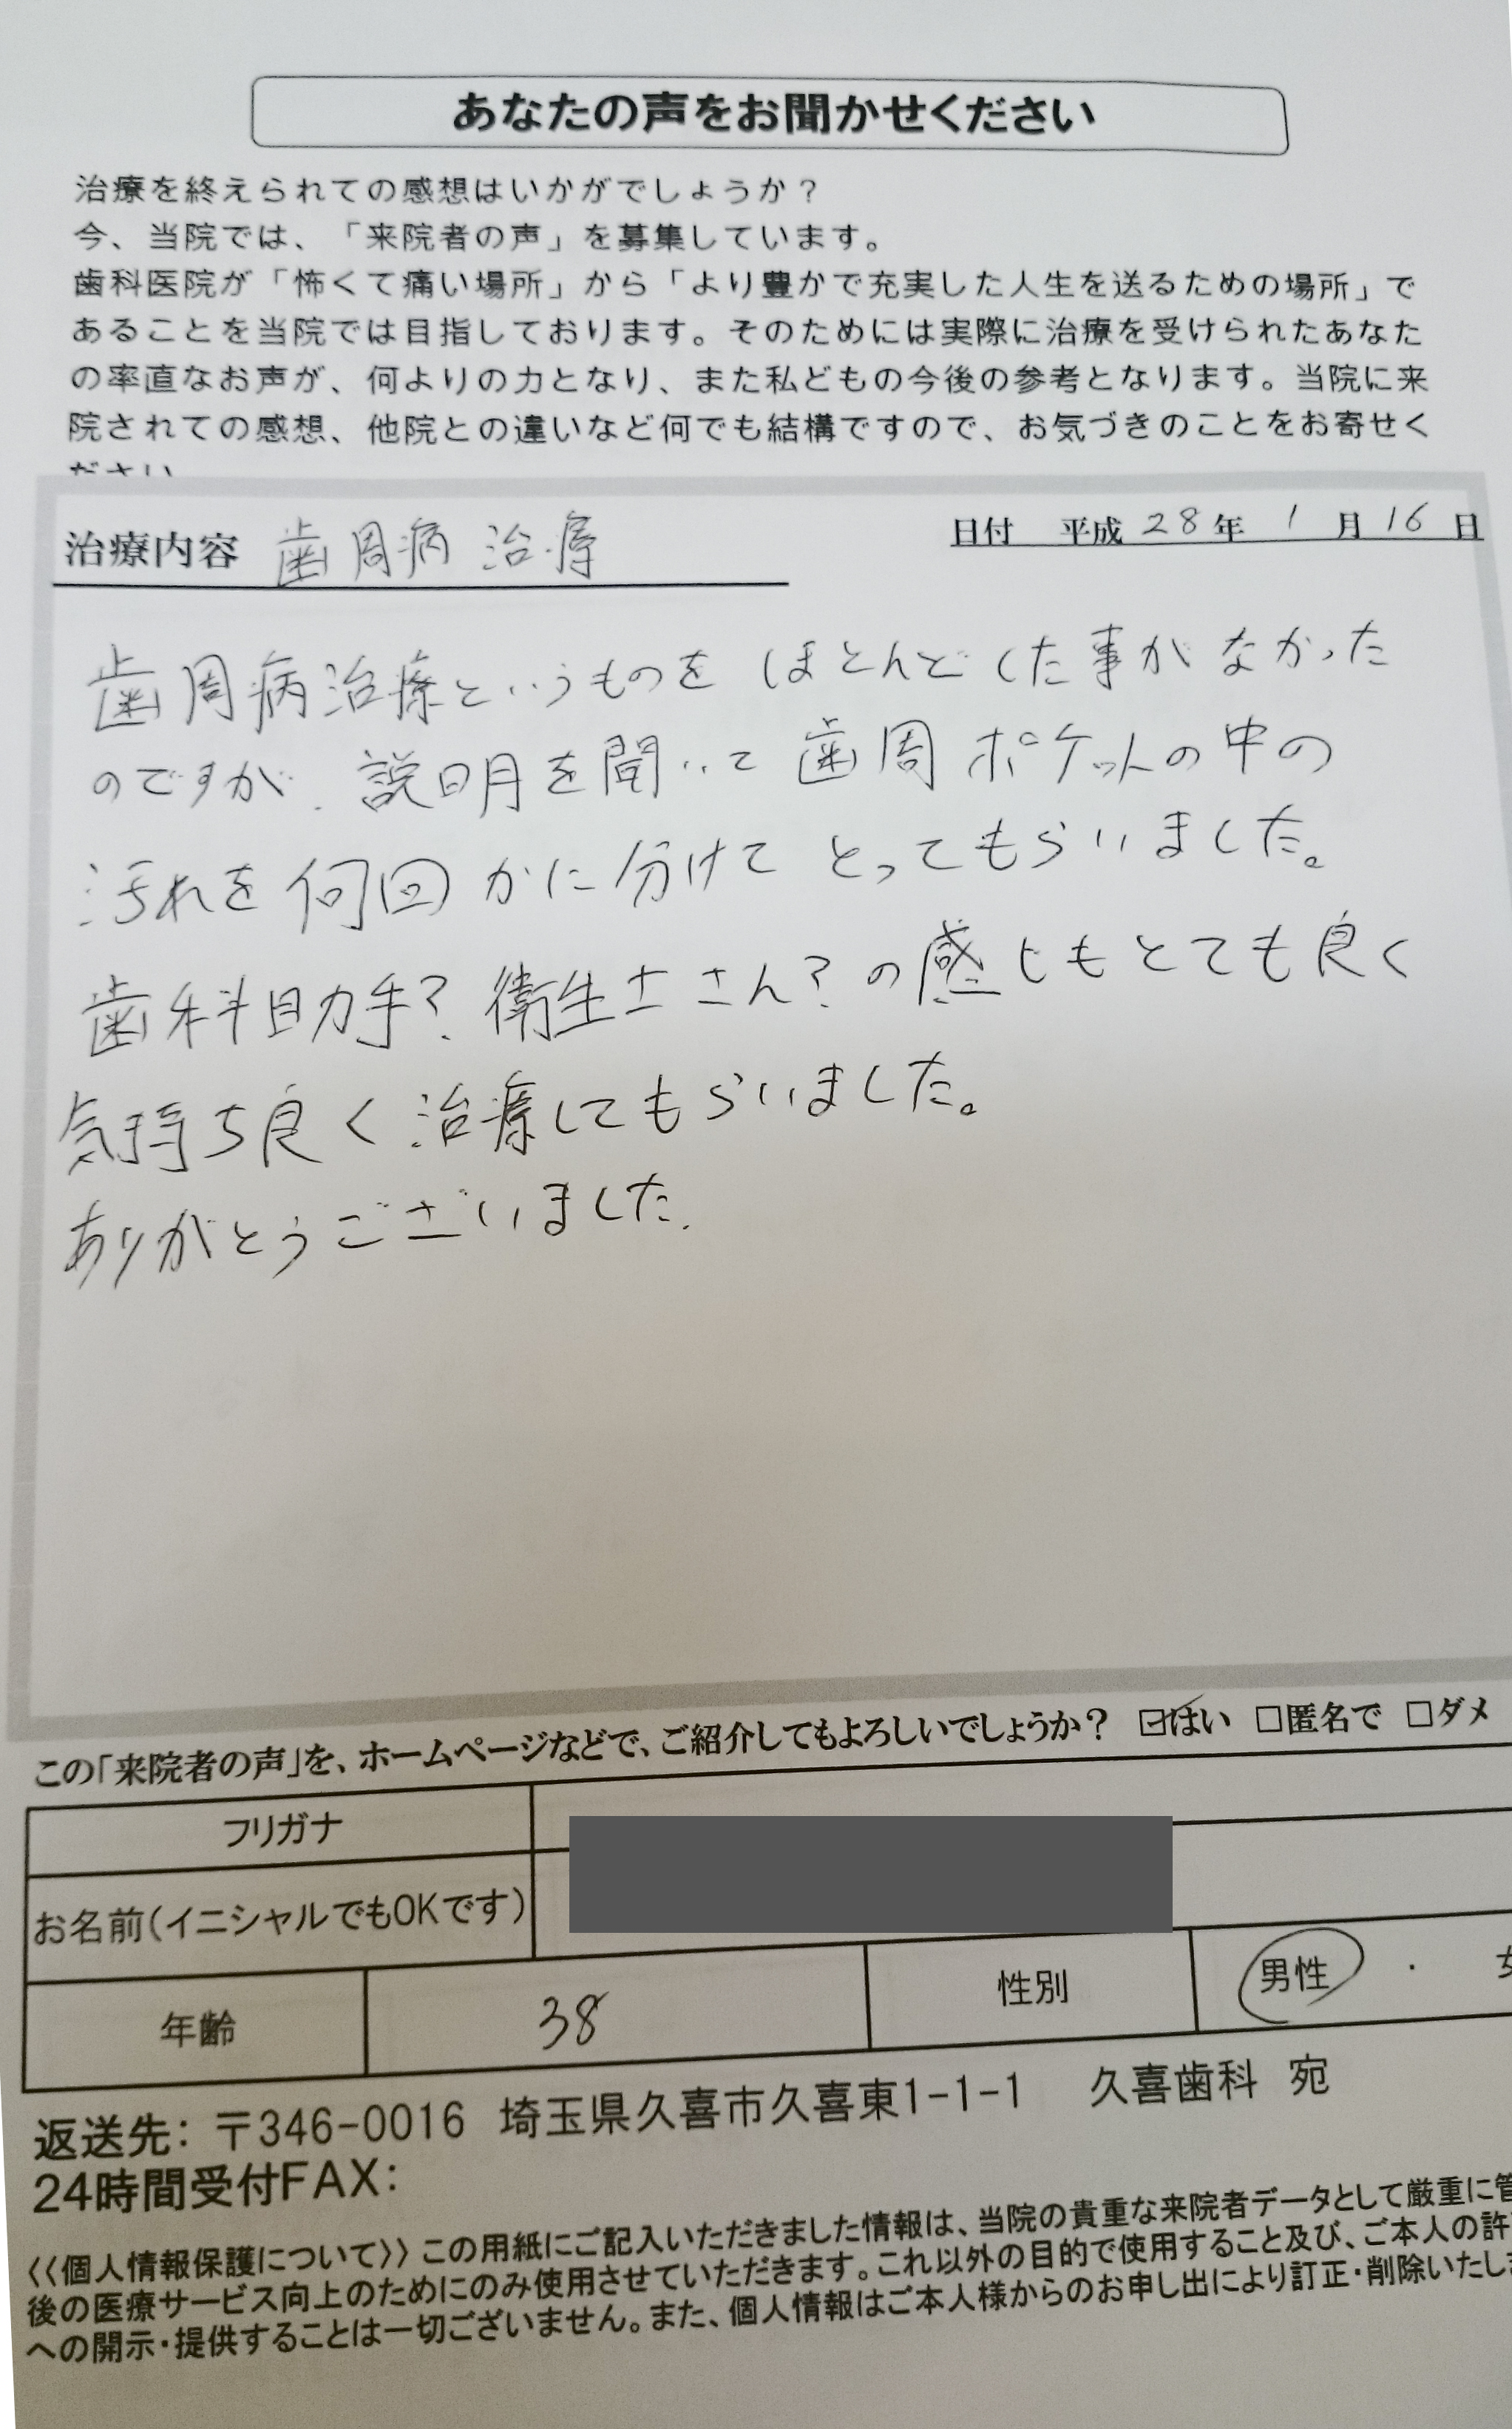 あなたの声をお聞かせください
治療を終えられての感想はいかがでしょうか？
今、当院では、「来院者の声」を募集しています。
歯科医院が「怖くて痛い場所」から「より豊かで充実した人生を送るための場所」で
あることを当院では目指しております。そのためには実際に治療を受けられたあなた
の率直なお声が、何よりの力となり、また私どもの今後の参考となります。当院に来
院されての感想、他院との違いなど何でも結構ですので、お気づきのことをお寄せく
ださい
治療内容 歯周病治療 日付 平成28年1月16日
歯周病治療というものをほとんどした事がなかった
のですが、説明を聞いて歯周ポケットの中の
汚れを何回かに分けてとってもらいました。
歯科助手？衛生士さん？の感じもとても良く
気持ち良く治療してもらいました。
ありがとうございました.
この「来院者の声」を、ホームページなどで、ご紹介してもよろしいでしょうか？ ☑はい □匿名で □ダメ
フリガナ
お名前(イニシャルでもOKです)
年齢 38 性別 男性 ・ 女
返送先：〒346-0016 埼玉県久喜市久喜東1-1-1 久喜歯科 宛
24時間受付FAX：
〈〈個人情報保護について〉〉この用紙にご記入いただきました情報は、当院の貴重な来院者データとして厳重に管
後の医療サービス向上のためにのみ使用させていただきます。これ以外の目的で使用すること及び、ご本人の許
への開示・提供することは一切ございません。また、個人情報はご本人様からのお申し出により訂正・削除いたしま